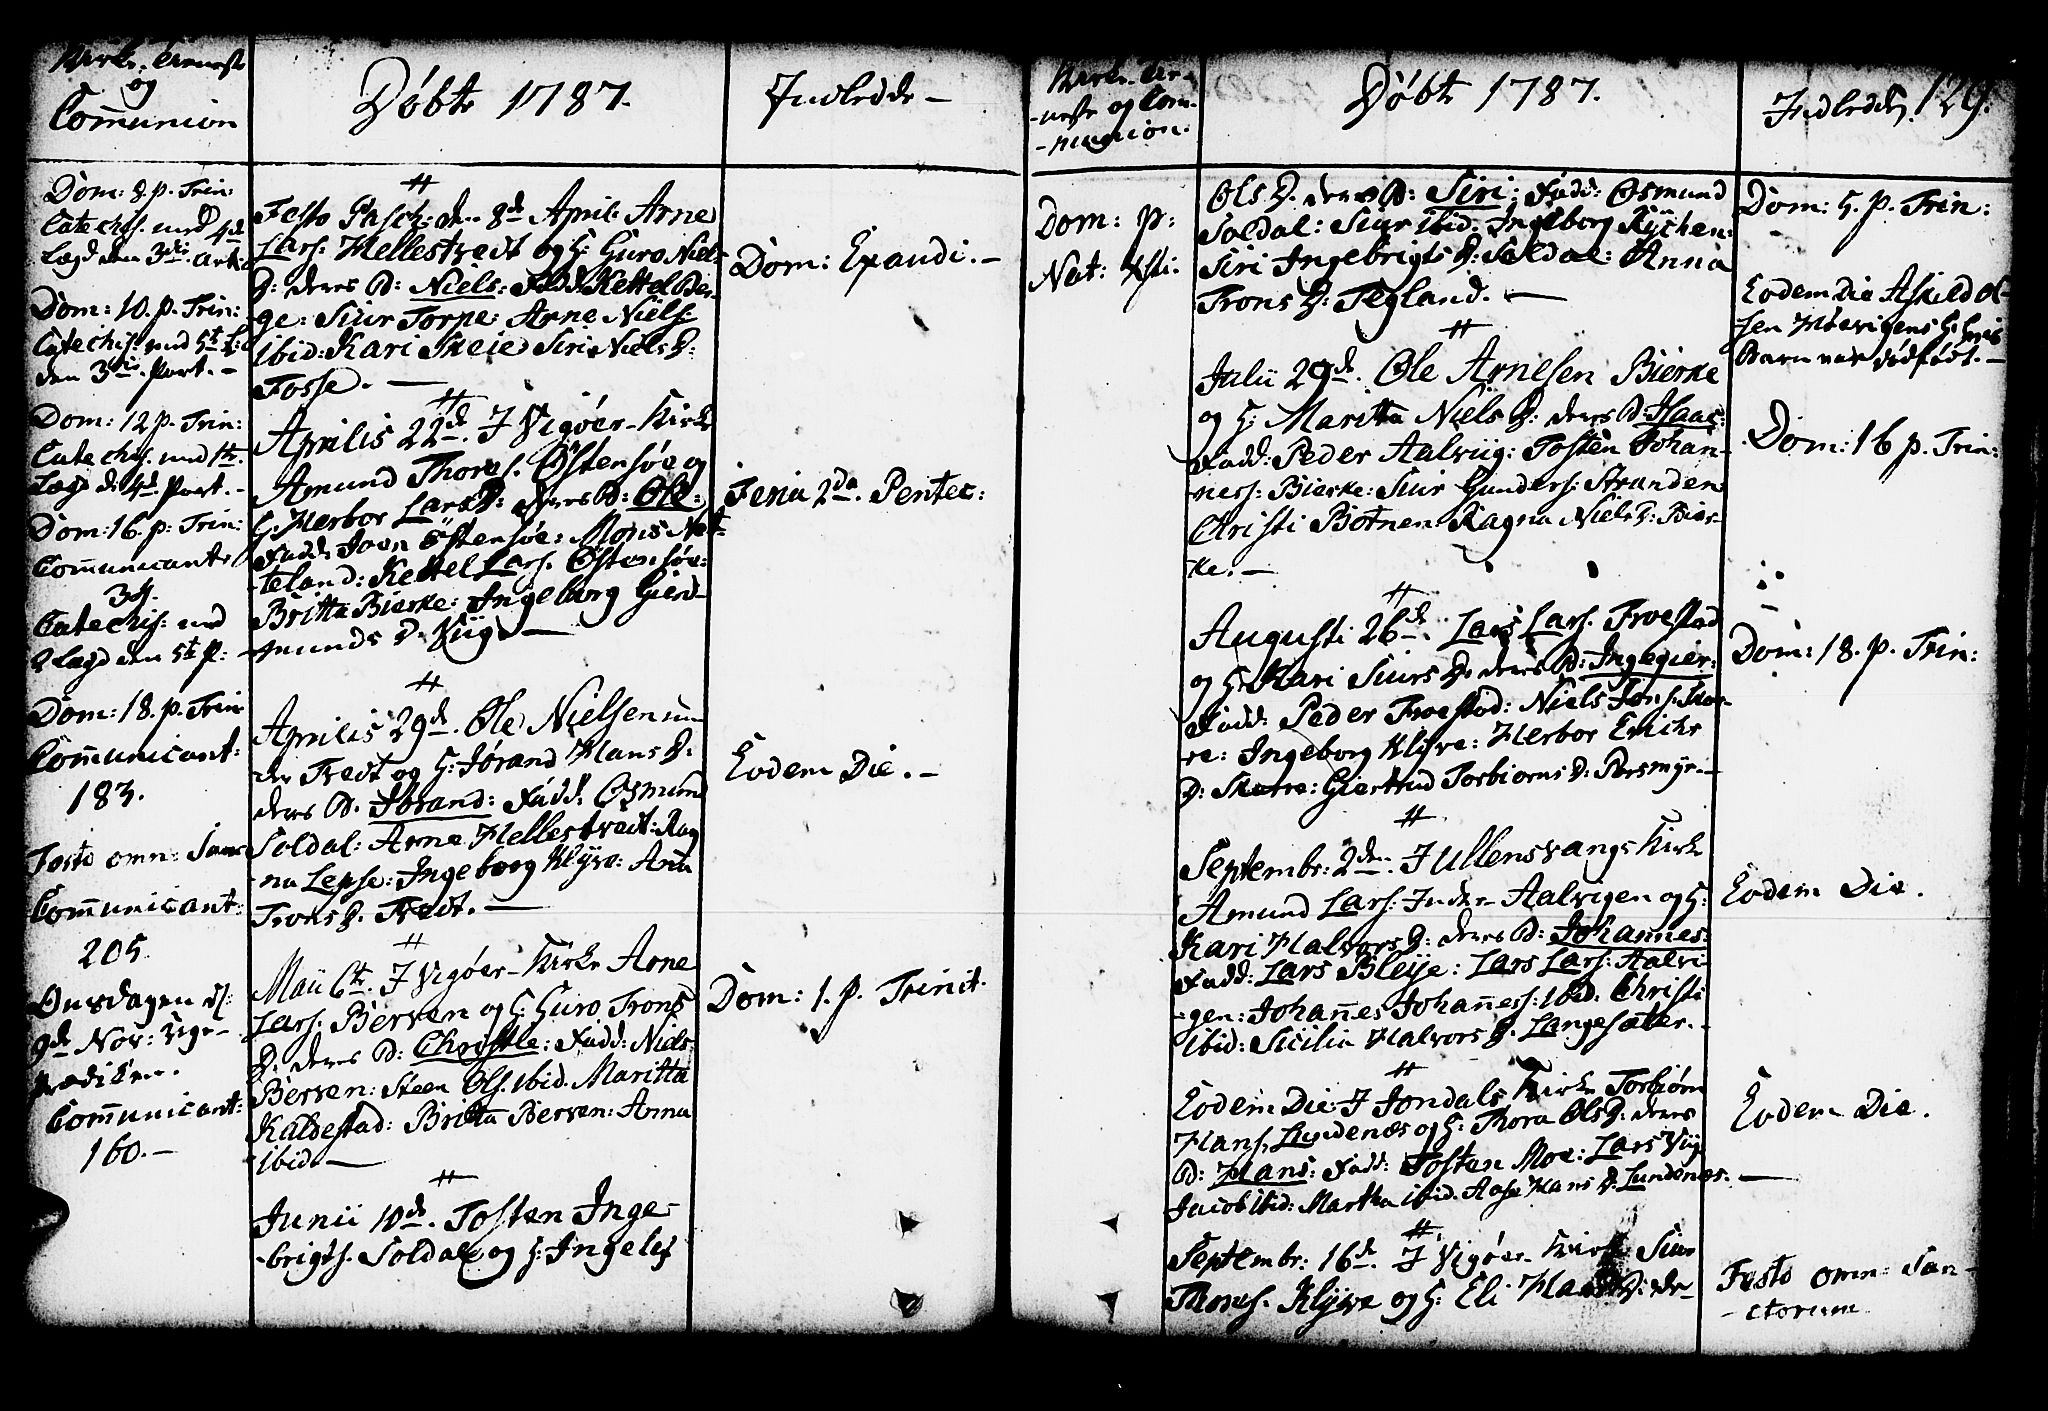 Kirke-Tieneste
og
Communion
Dom: 8. p. Trin:
Catechis. med 4de
Lægd den 3die Art:
Dom: 10. p. Trin:
Catechis: med 5te L:
den 3die Part. -
Dom: 12 p. Trin:
Catechis. med 1te
Lægd d: 4de Part. -
Dom: 16. p: Trin:
Communicanter
34.
Catechis: med
2 Lægd den 5te P: -
Dom: 18. p. Trin
Communicant:
183.
Festo omn: Sanct
Communicant:
205.
Onsdagen d:
9de Nov:
Prædiken.
Communicant:
160. -
Döbte 1787.
Festo Pasch: den 8de April: Arne
Lars: Hellestvedt og H: Guro Niels
D: deres B: Niels: Fadd: Kettel Ber-
ge: Siur Torpe: Arne Niels:
ibid: Kari Skeie Siri Niels D:
Fosse. -
Aprilis 22de. I Vigöer-Kirke
Amund Thores. Östensöe og
H: Herbor Lars D: deres B: Ole:
Fadd: Joen Östensöe: Mons Net-
teland: Kettel Lars. Östensöe:
Britta Bierke: Ingeborg Gierd-
munds D. Viig. -
Aprilis 29de. Ole Nielsen un-
der Tvedt og H: Jórand Hans D:
deres B. Jórand: Fadd: Osmund
Soldal: Arne Hellestveit: Rag
na Lepse: Ingeborg Klyve: Ana
Trons D. Tvedt. -
Maii 6te. I Vigöer-Kirke Arne
Lars. Berven og H: Guro Trons
D: deres B: Christle: Fadd: Niels
Berven: Steen Ols. ibid. Maritta
Kaldestad: Britta Berven: Anna
ibid. -
Junii 10de. Tosten Inge-
brigts. Soldal og H: Ingelef
Indledde -
Dom: Exaudi. -
Feria 2da. Pentec:
Eodem Die. -
Dom: 1. p. Trinit.
Kirke-Tie-
neste og Com-
munion.
Dom: p:
Nat: Xsti.
Döbte 1787.
Ols D. deres B: Siri: Fadd: Osmund
Soldal: Siur ibid. Ingeborg Kychen:
Siri Ingebrigts D: Soldal: Anna
Trons D: Tegland. -
Julii 29de. Ole Arnesen Bierke
og H: Maritta Niels D: deres B: Haac:
Fadd: Peder Aalviig: Tosten Johan-
ness: Bierke: Siur Gunders: Stranden
Christi Botnen Ragna Niels D: Bier-
ke. -
Augusti 26de. Lars Lars. Froestad
og H: Kari Siurs D: deres B: Ingegier:
Fadd: Peder Froestad: Niels Jons.
re: Ingeborg Klyve: Herbor Erichs
D: Skutre: Giertrud Torbiorns D: Porsmyr. -
Septembr: 2den. I Ullensvangs Kirke
Amund Lars: Indre Aalvigen og H:
Kari Halvors D: deres B: Johannes:
Fadd: Lars Bleye: Lars Lars: Aalvi-
gen: Johannes Johanness: ibid. Christi
ibid: Sicilia Halvors D. Langesæter. -
Eodem Die I Jondals Kirke Torbiörn
Hans. Lundenæs og H: Thora Ols D: deres
B: Hans: Fadd: Tosten Moe: Lars Viig
Jacob ibid: Martha ibid. Aase Hans D. Lundenæs. -
Septembr: 16de. I Vigöer-Kirke Siur
Thores. Klyve og H: Eli D: de-
Indledde. 129.
Dom: 5. p. Trin:
Eodem Die Askild Ol-
sen H: hvis
Barn var dödfödt. -
Dom: 16 p. Trin:
Dom: 18. p. Trin:
Eodem Die.
Eodem Die.
Festo omn: San-
ctorum